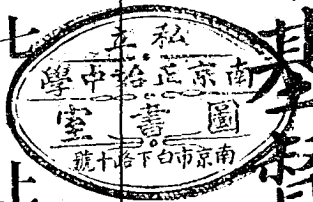 私立
南京正始中學
圖書室
南京市白下路十號